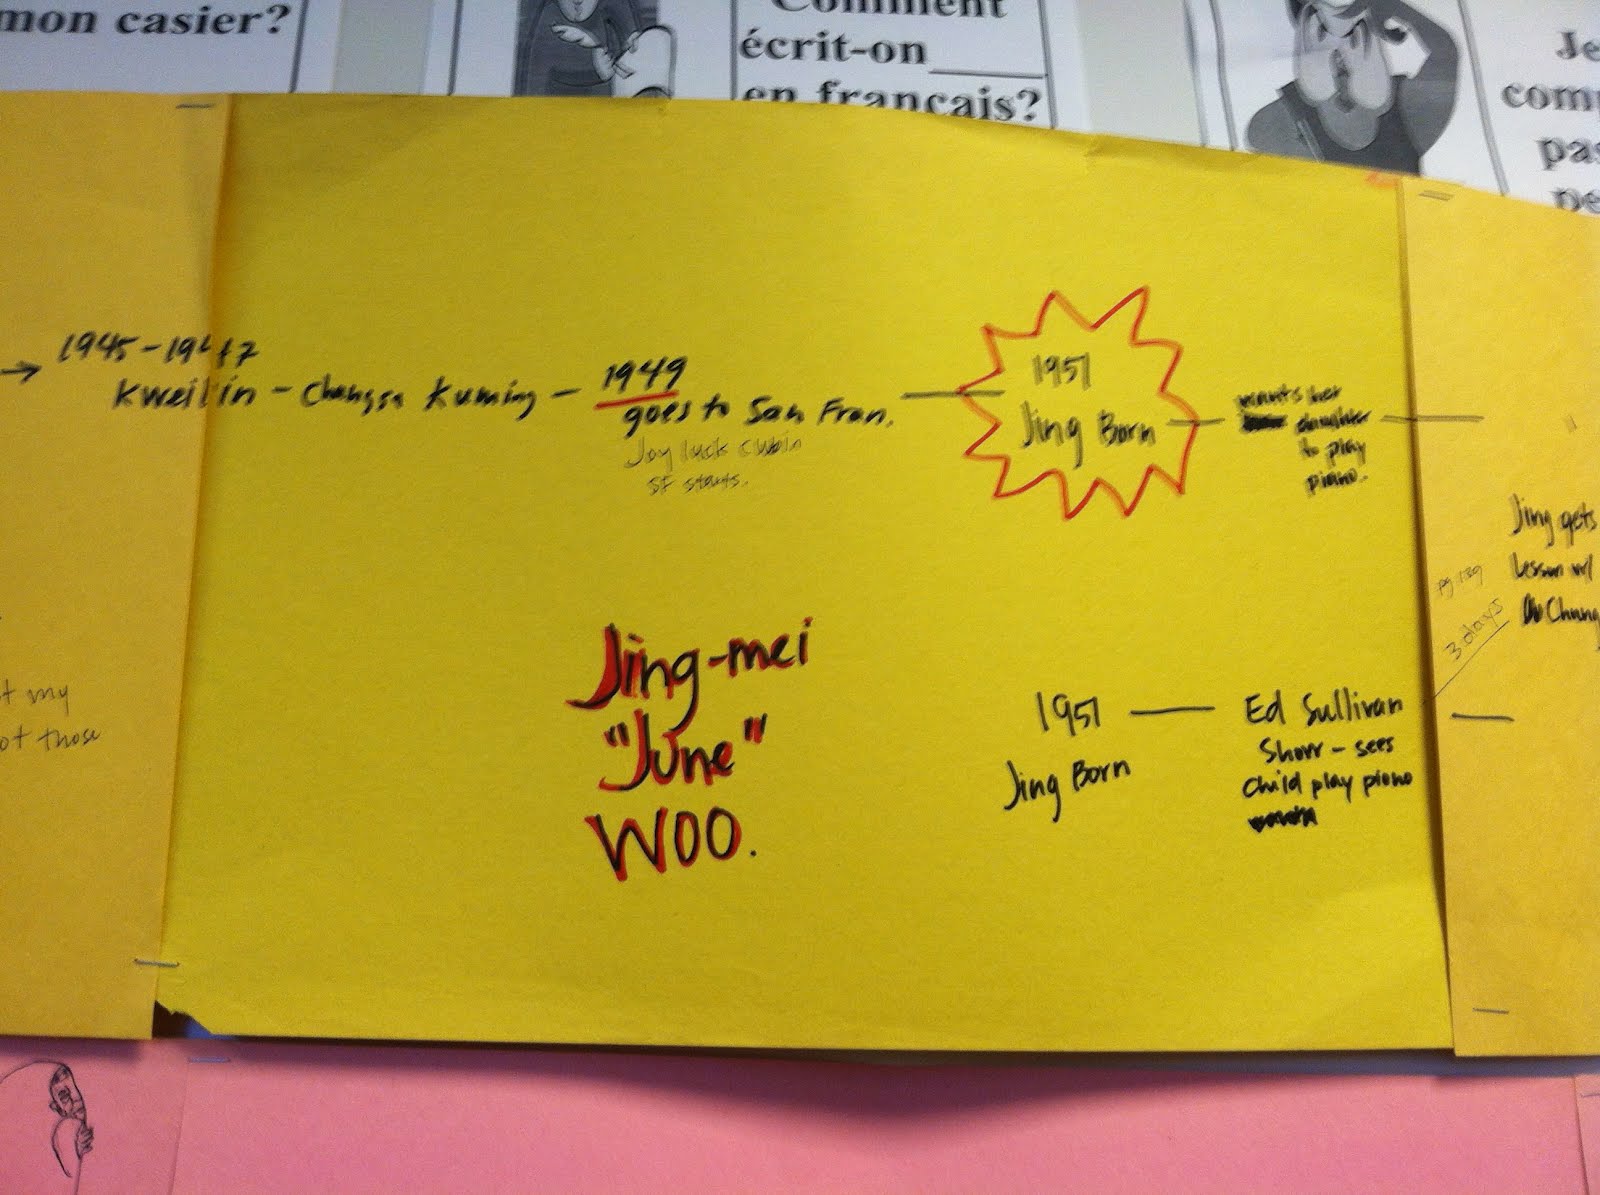 mon casier?
Comment
écrit-on____
en français?
Je
comp
pas
pe
→ 1945-1947
Kweilin - Changsa Kuming -
1949
goes to San Fran.
Joy luck club in
SF starts.
1951
Jing Born
wants her
daughter
to play
piano.
Jing gets
Lesson w/
Chung
pg 139
3 days
t my
ot those
Jing-mei
"June"
WOO.
1951 — Ed Sullivan
Jing Born
Show - sees
Child play piano